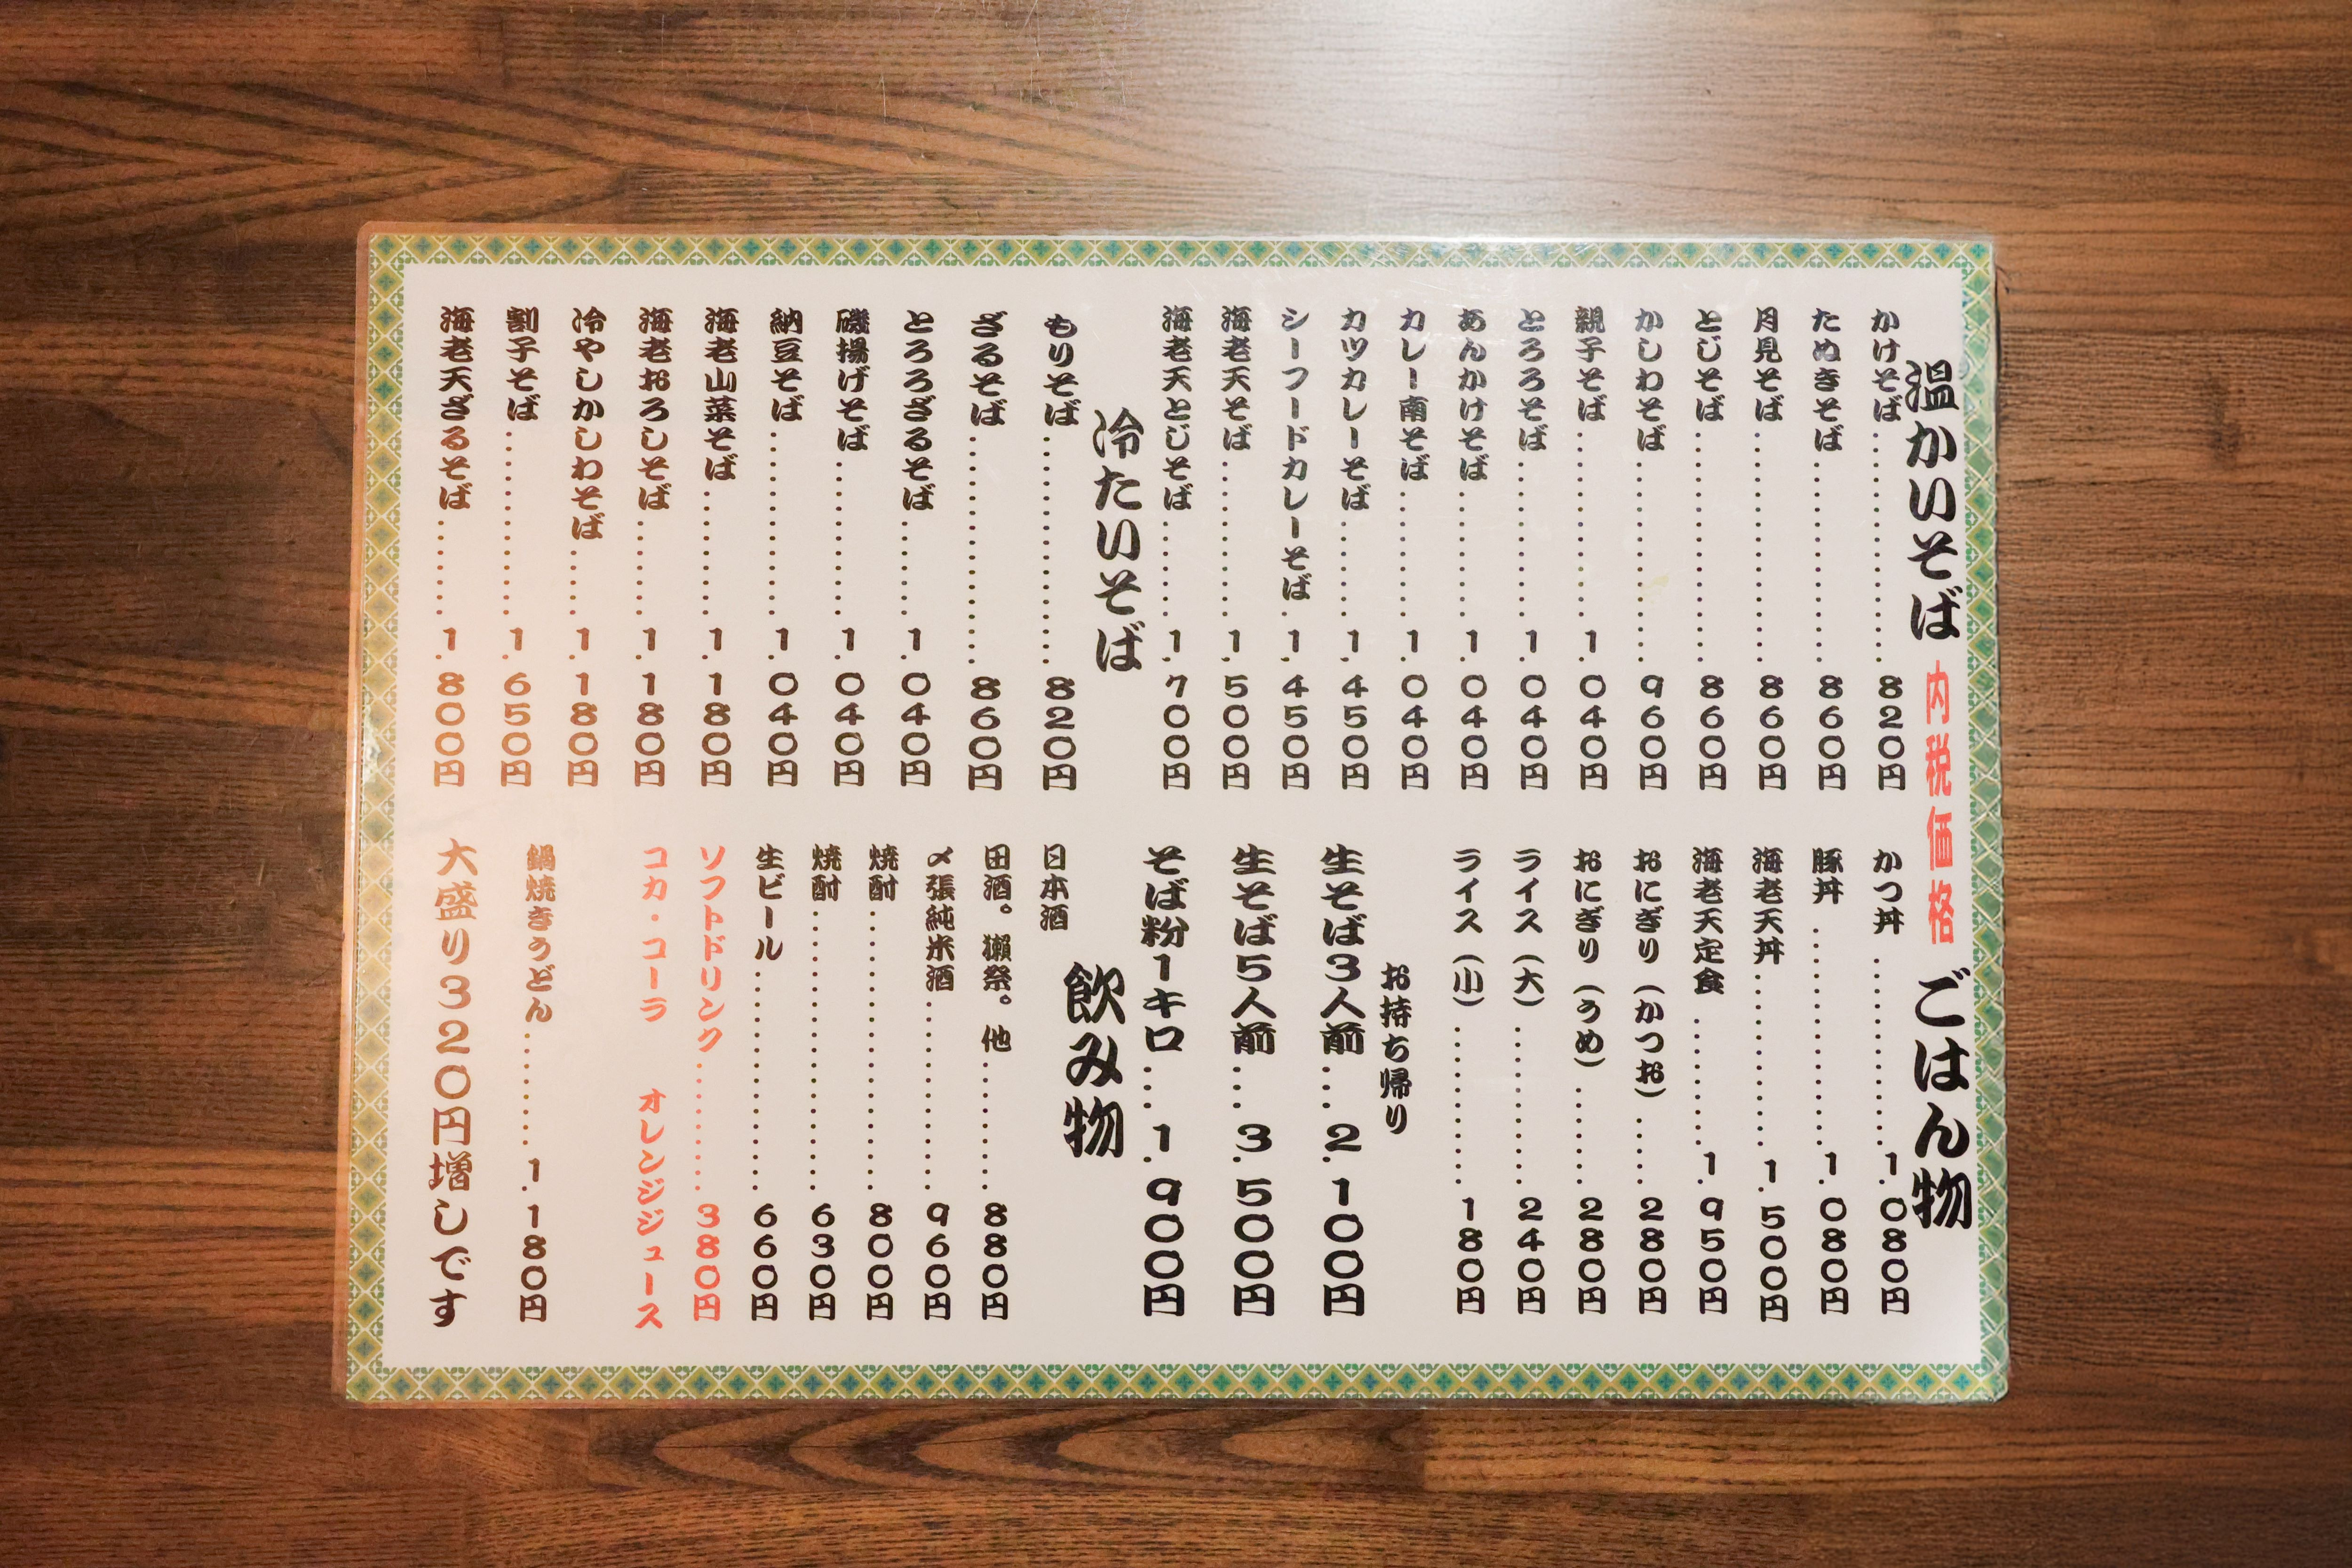 温かいそば
内税価格
かけそば 820円
たぬきそば 860円
月見そば 860円
とじそば 860円
かしわそば 960円
親子そば 1.040円
とろろそば 1.040円
あんかけそば 1.040円
カレー南そば 1.040円
カツカレーそば 1.450円
シーフードカレーそば 1.450円
海老天そば 1.500円
海老天とじそば 1.700円
冷たいそば
もりそば 820円
ざるそば 860円
とろろざるそば 1.040円
磯揚げそば 1.040円
納豆そば 1.040円
海老山菜そば 1.180円
海老おろしそば 1.180円
冷やしかしわそば 1.180円
割子そば 1.650円
海老天ざるそば 1.800円
ごはん物
かつ丼 1.080円
豚丼 1.080円
海老天丼 1.500円
海老天定食 1.950円
おにぎり(かつお) 280円
おにぎり(うめ) 280円
ライス(大) 240円
ライス(小) 180円
お持ち帰り
生そば3人前 2.100円
生そば5人前 3.500円
そば粉1キロ 1.900円
飲み物
日本酒
田酒。獺祭。他 880円
〆張純米酒 960円
焼酎 800円
焼酎 630円
生ビール 660円
ソフトドリンク 380円
コカ・コーラ オレンジジュース
鍋焼きうどん 1.180円
大盛り320円増しです